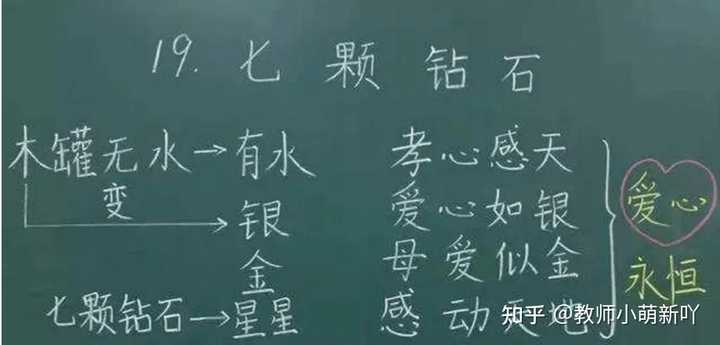 19. 七颗钻石
木罐无水→有水 孝心感天
变
银 爱心如银
金 母爱似金
七颗钻石→星星 感动天地
爱心
永恒
知乎 @教师小萌新吖